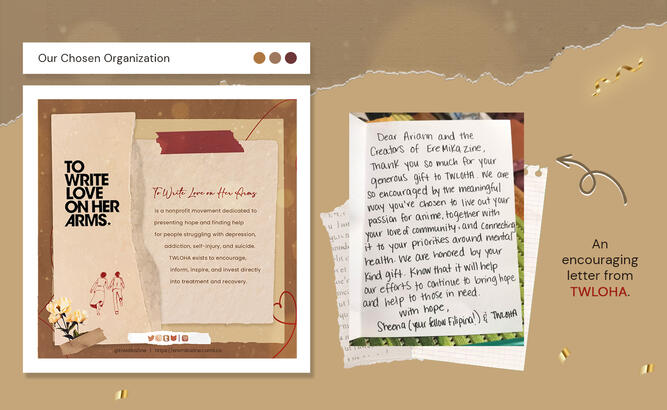 Our Chosen Organization
TO
WRITE
LOVE
ON HER
ARMS.
To Write Love on Her Arms
is a nonprofit movement dedicated to
presenting hope and finding help
for people struggling with depression,
addiction, self-injury, and suicide.
TWLOHA exists to encourage,
inform, inspire, and invest directly
into treatment and recovery.
Dear Ariann and the
Creators of EreMika Zine,
Thank you so much for your
generous gift to TWLOHA. We are
so encouraged by the meaningful
way you've chosen to live out your
passion for anime, together with
your love of community, and connecting
it to your priorities around mental
health. We are honored by your
kind gift. Know that it will help
our efforts to continue to bring hope
and help to those in need.
with hope,
Sheena (your fellow Filipina!) & TWLOHA
An
encouraging
letter from
TWLOHA.